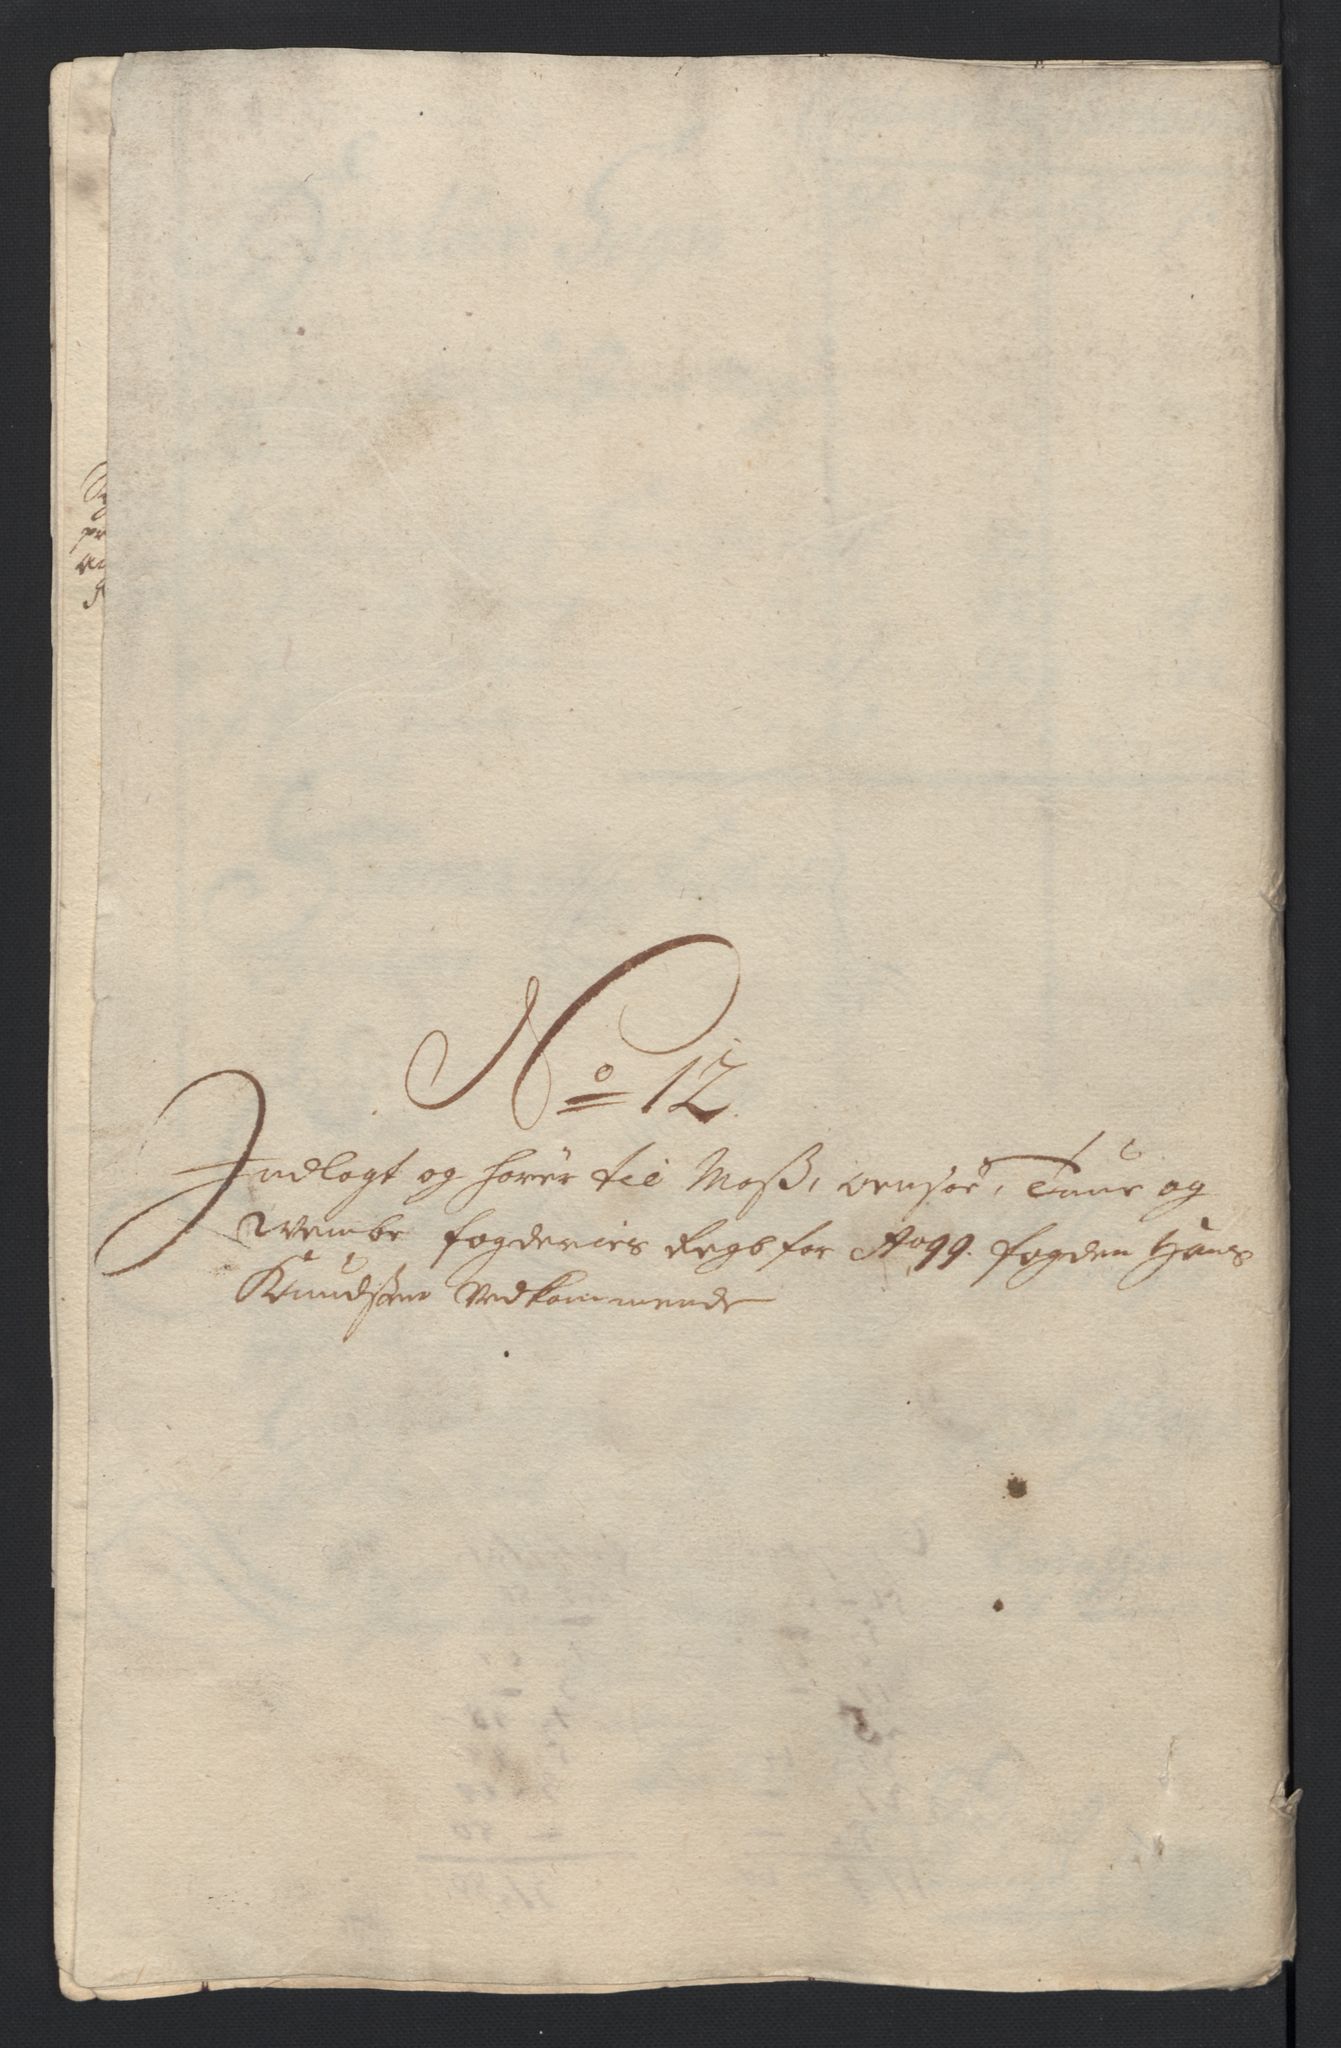 No 12
Indlagt og hører til Moss, Onsøe, Tune og
Wembe fogderies Regb for Ao 99. fogden Hans
Knudsen Vedkommende